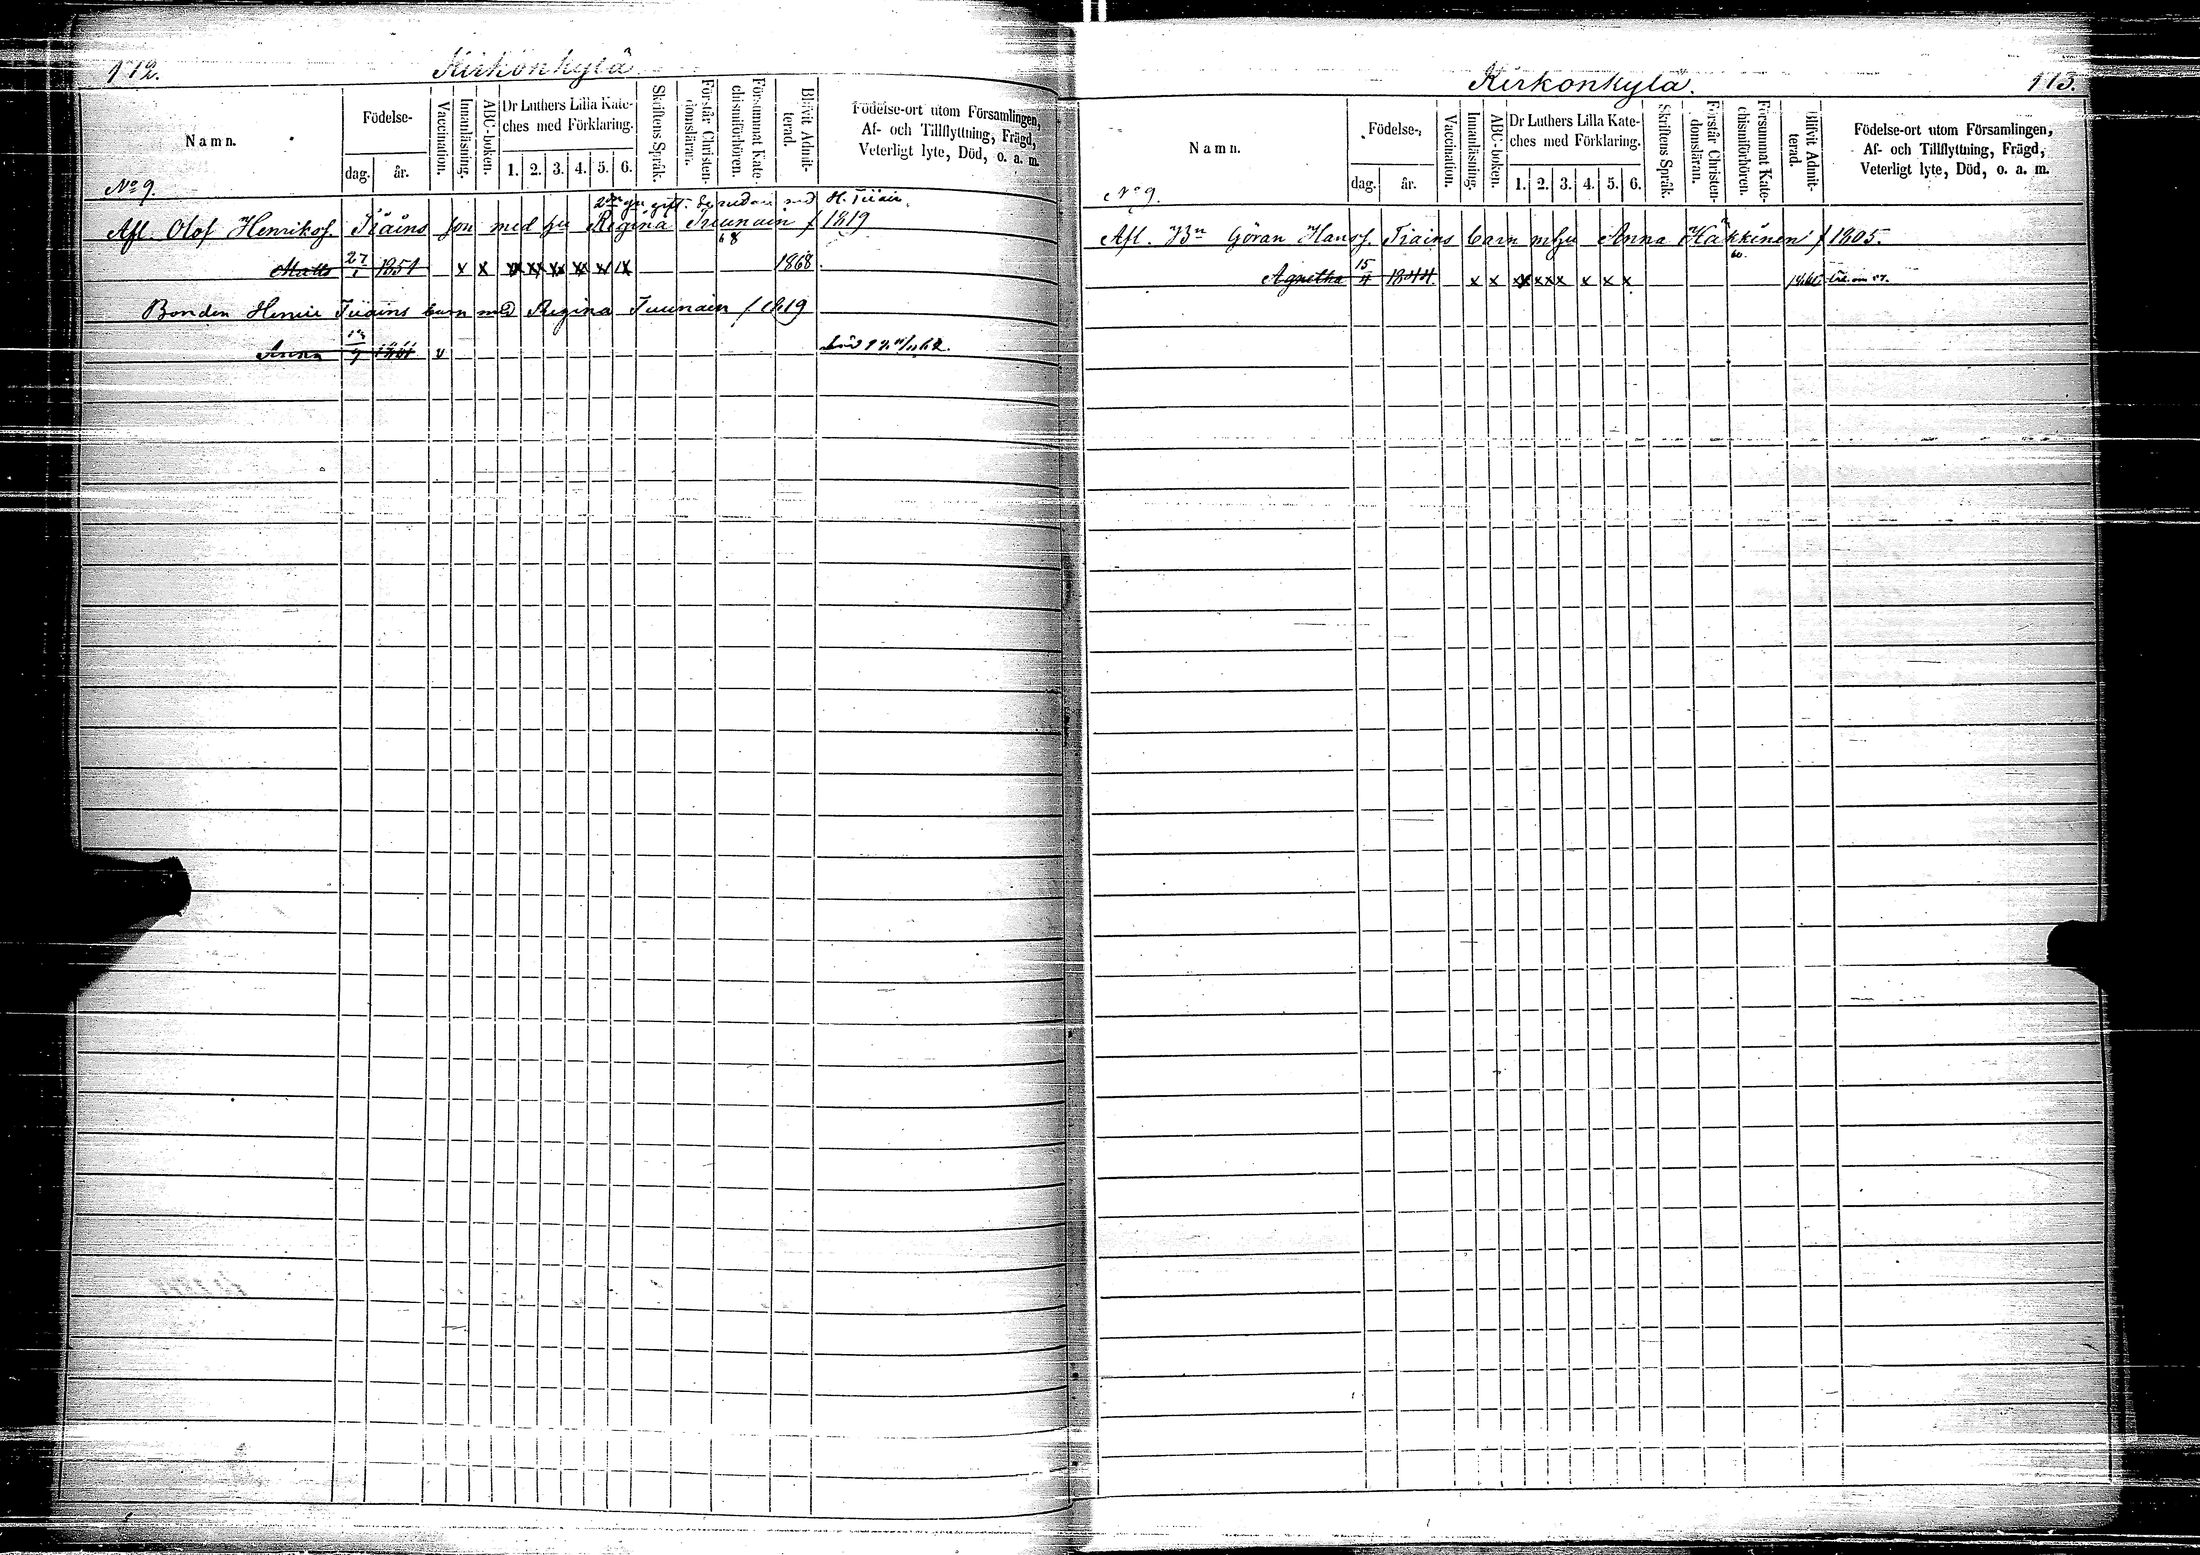 172.
Kirkonkylä
Namn.
Födelse-
dag.
år.
Vaccination.
Innanläsning.
ABC-boken.
Dr Luthers Lilla Kate-
ches med Förklaring.
1. 2. 3. 4. 5. 6.
Skriftens Språk.
Förstår Christen-
domsläran.
Försummat Kate-
chismiförhören.
Blifvit Admit-
terad.
Födelse-ort utom Församlingen,
Af- och Tillflyttning, Frägd,
Veterligt lyte, Död, o. a. m.
No 9.
H. Tiiain.
Afl. Olof Henriksf. Tiäins son med hu Regina Tuunain f 1819
68
Matts 27/1 1851 x x x x x x x x 1868
Bonden Henric Tiiains barn med Regina Tuunain f 1819
Anna v
Kirkonkylä.
173.
Namn.
Födelse-
dag.
år.
Vaccination.
Innanläsning.
ABC-boken.
Dr Luthers Lilla Kate-
ches med Förklaring.
1. 2. 3. 4. 5. 6.
Skriftens Språk.
Förstår Christen-
domsläran.
Försummat Kate-
chismiförhören.
Blifvit Admit-
terad.
Födelse-ort utom Församlingen,
Af- och Tillflyttning, Frägd,
Veterligt lyte, Död, o. a. m.
No 9.
Afl. Bn Göran Hansf. Tiains barn m hu Anna Häkkinen f 1805.
60.
Agnetha 15/4 1844. x x x x x x x x